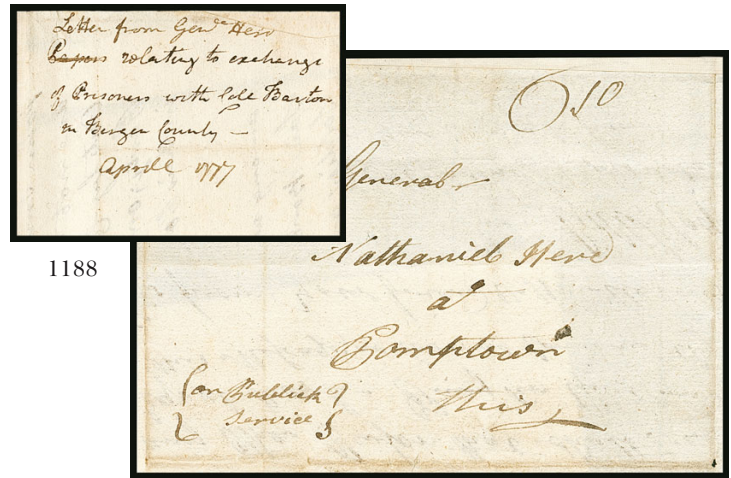 Letter from Genl. Herd
Papers relating to exchange
of Prisoners with Coll Barton
in Bergen County —
Aprill 1777
1188
General
Nathaniel Herd
at
Pomptown
this
on Publick
Service